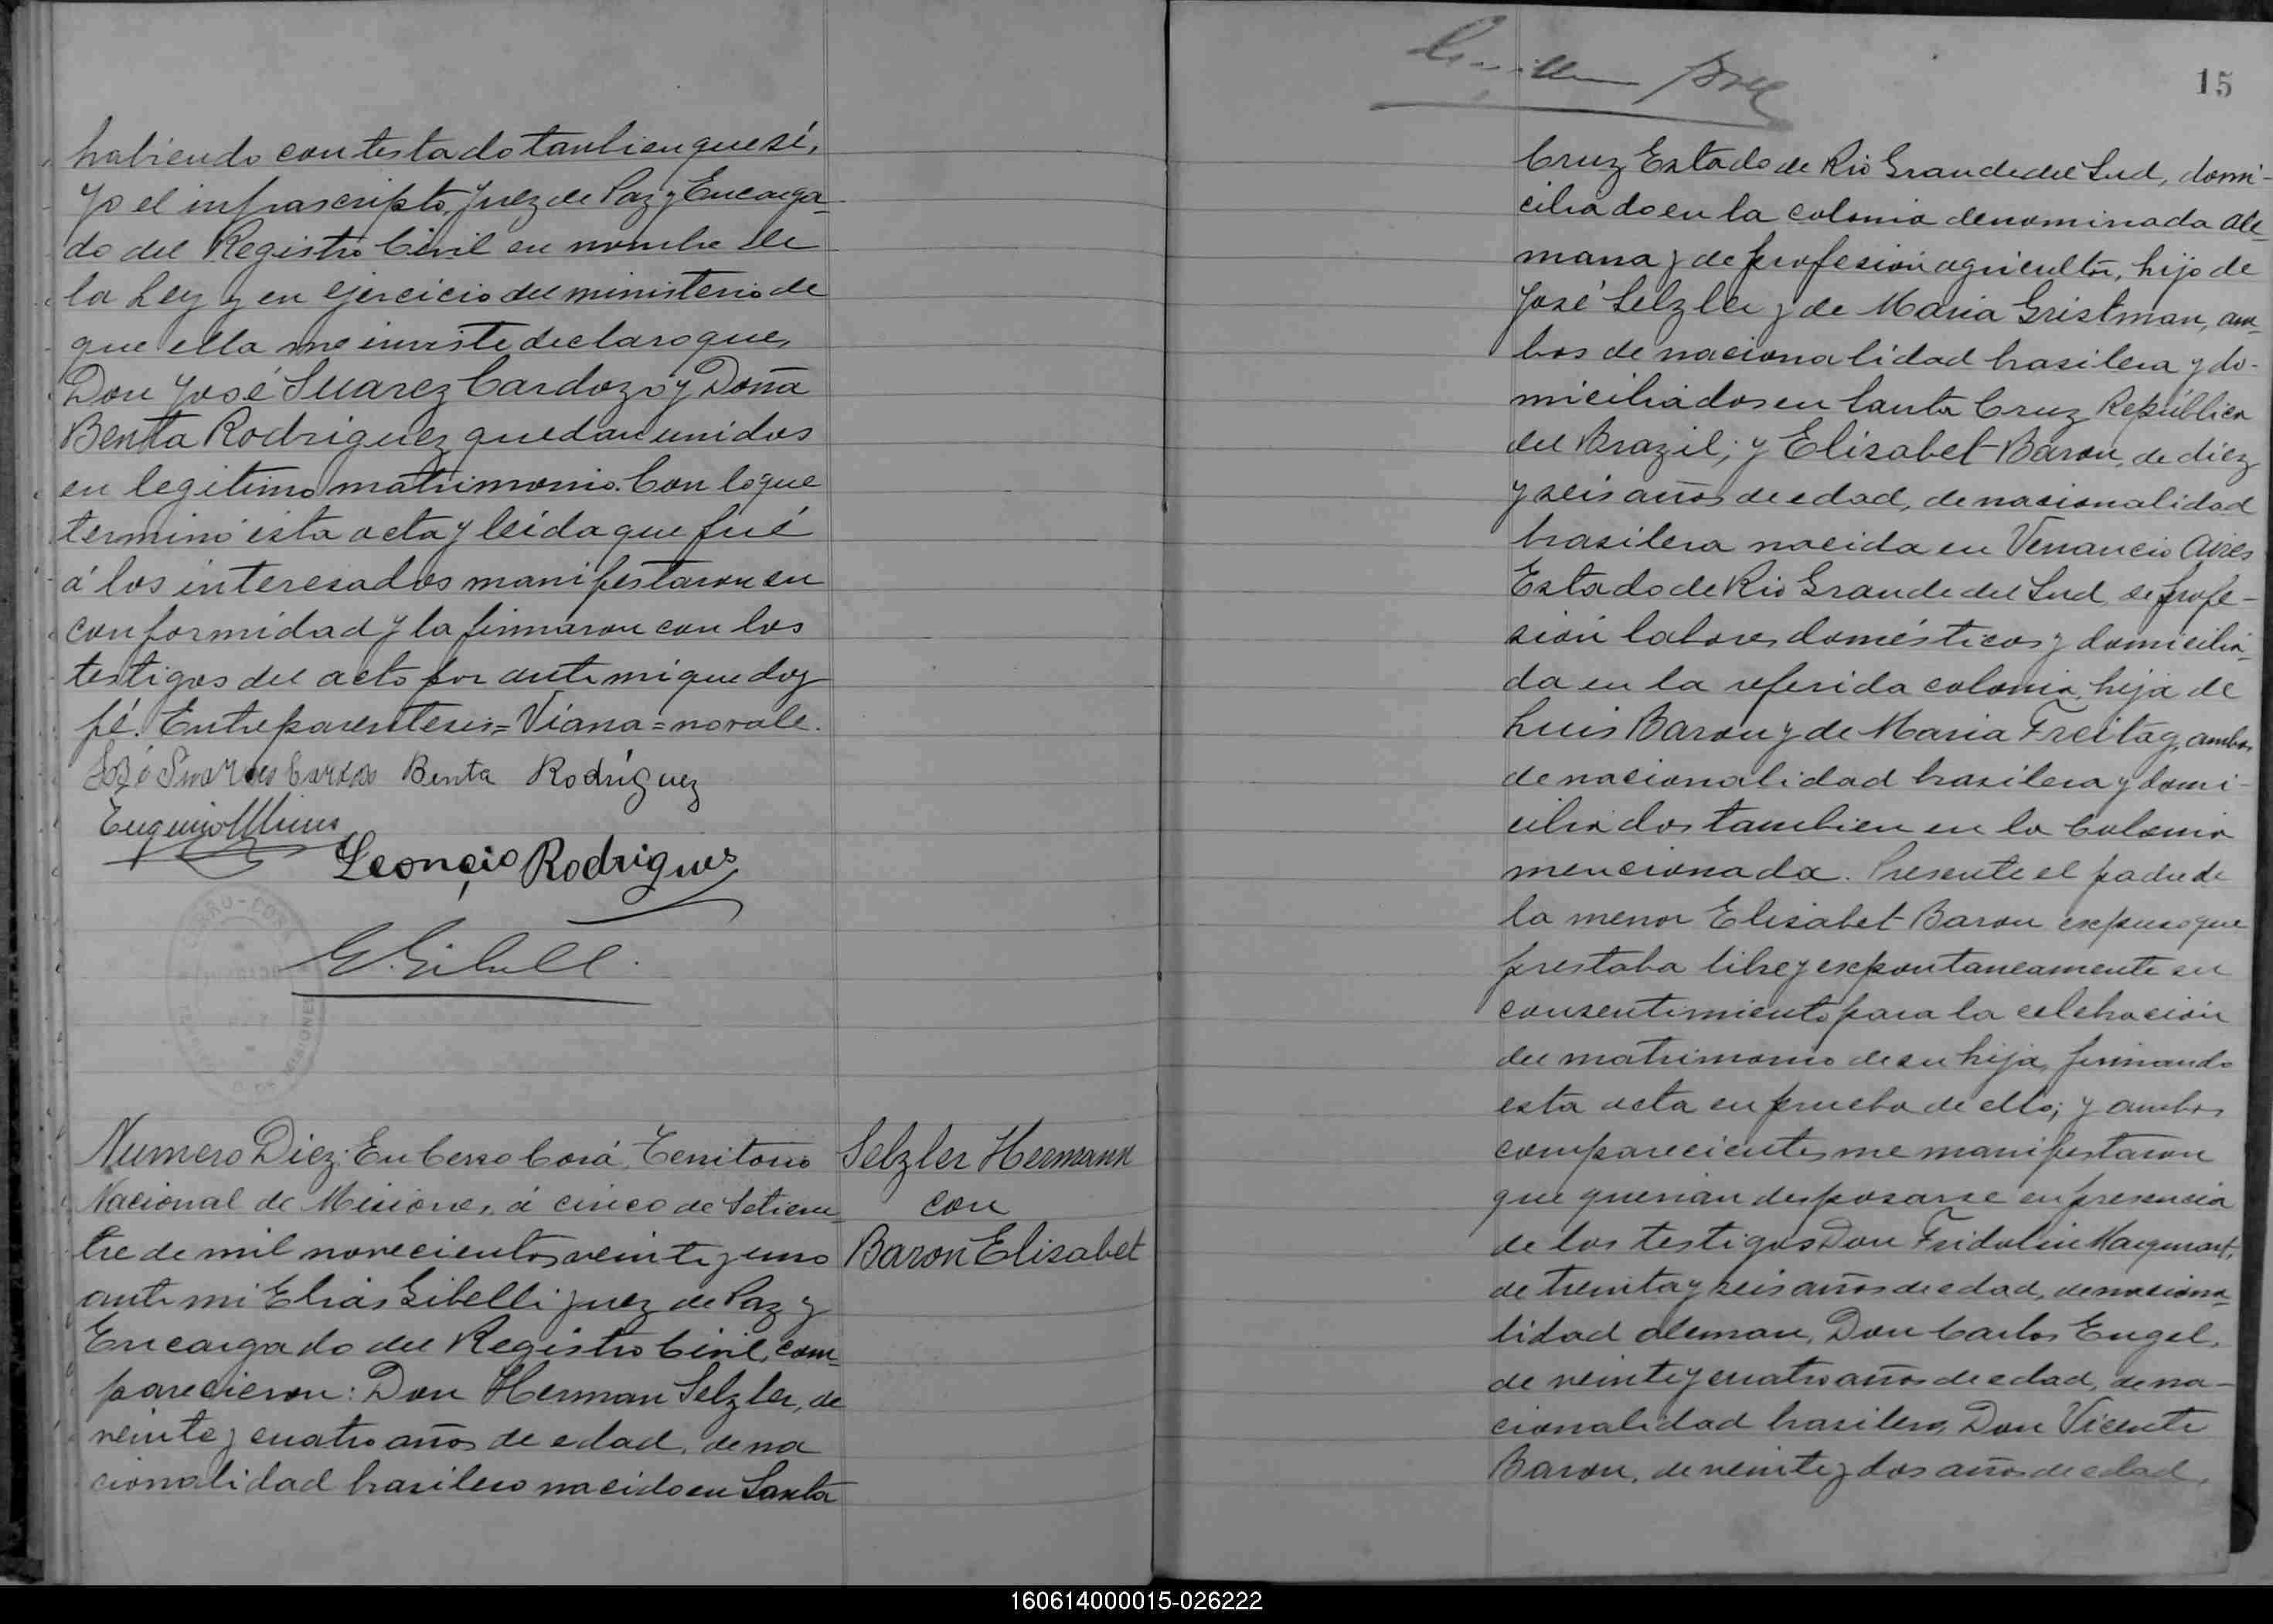 habiendo contestado tanbien que sí,
Yo el infrascripto, Juez de Paz y Encarga-
do del Registro Civil en nombre de
la Ley y en ejercicio del ministerio de
que ella me inviste declaro que,
Don José Suarez Cardozo y Doña
Benta Rodriguez quedan unidos
en legitimo matrimonio. Con lo que
terminó esta acta y leida que fué
á los interesados manifestaron su
conformidad y la firmaron con los
testigos del acto por ante mi que doy
fé. Entreparentesis = Viana = no vale.
Benta Rodriguez
Eugenio
Leoncio Rodrigues
E. Gibelli.
CERRO-CORÁ
MISIONES
Numero Diez: En Cerro Corá, Territorio
Nacional de Misiones, á cinco de Setiem-
bre de mil novecientos veinte y uno
ante mi Elías Gibelli Juez de Paz y
Encargado del Registro Civil, com-
parecieron: Don Herman Selzler, de
veinte y cuatro años de edad, de na
cionalidad brasilero nacido en Santa
Selzler Hermann
con
Baron Elisabet
15
Cruz Estado de Rio Grande del Sud, domi-
ciliado en la colonia denominada Ale-
mana y de profesión agricultor, hijo de
José Selzler y de Maria Gristman, am-
bos de nacionalidad brasilera y do-
miciliados en Santa Cruz República
del Brazil; y Elisabet Baron, de diez
y seis años de edad, de nacionalidad
brasilera nacida en Venancio Aires
Estado de Rio Grande del Sud, de profe-
sión labores domésticos y domicilia-
da en la referida colonia, hija de
Luis Baron y de Maria Freitag, ambos
de nacionalidad brasilera y domi-
ciliados tambien en la Colonia
mencionada. Presente el padre de
la menor Elisabet Baron expuso que
prestaba libre y expontaneamente su
consentimiento para la celebración
del matrimonio de su hija, firmando
esta acta en prueba de ello; y ambos
comparecientes me manifestaron
que querian desposarse en presencia
de los testigos Don Fridolin Marquart,
de treinta y seis años de edad, de naciona-
lidad aleman, Don Carlos Engel,
de veinte y cuatro años de edad, de na-
cionalidad brasilero, Don Vicente
Baron, de veinte y dos años de edad,
160614000015-026222